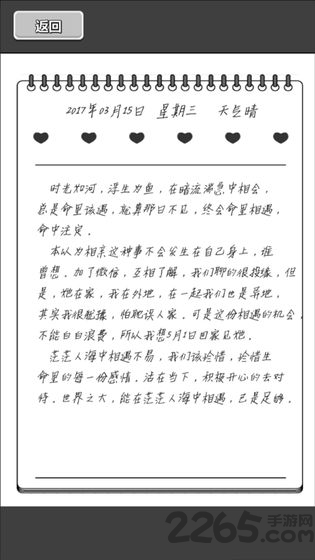 返回
2017年03月15日 星期三 天气晴
时光如河，浮生为鱼，在暗流湍急中相会，
总是命里该遇，就算那日不见，终会命里相遇，
命中注定。
本以为相亲这种事不会发生在自己身上，谁
曾想。加了微信，互相了解，我们聊的很投缘，但
是，她在家，我在外地，在一起我们也是异地，
其实我很尴尬，怕耽误人家。可是这份相遇的机会，
不能白白浪费，所以我想5月1日回家见她。
茫茫人海中相遇不易，我们该珍惜，珍惜生
命里的每一份感情。活在当下，积极开心的去对
待。世界之大，能在茫茫人海中相遇，已是足够。
2265.com
手游网